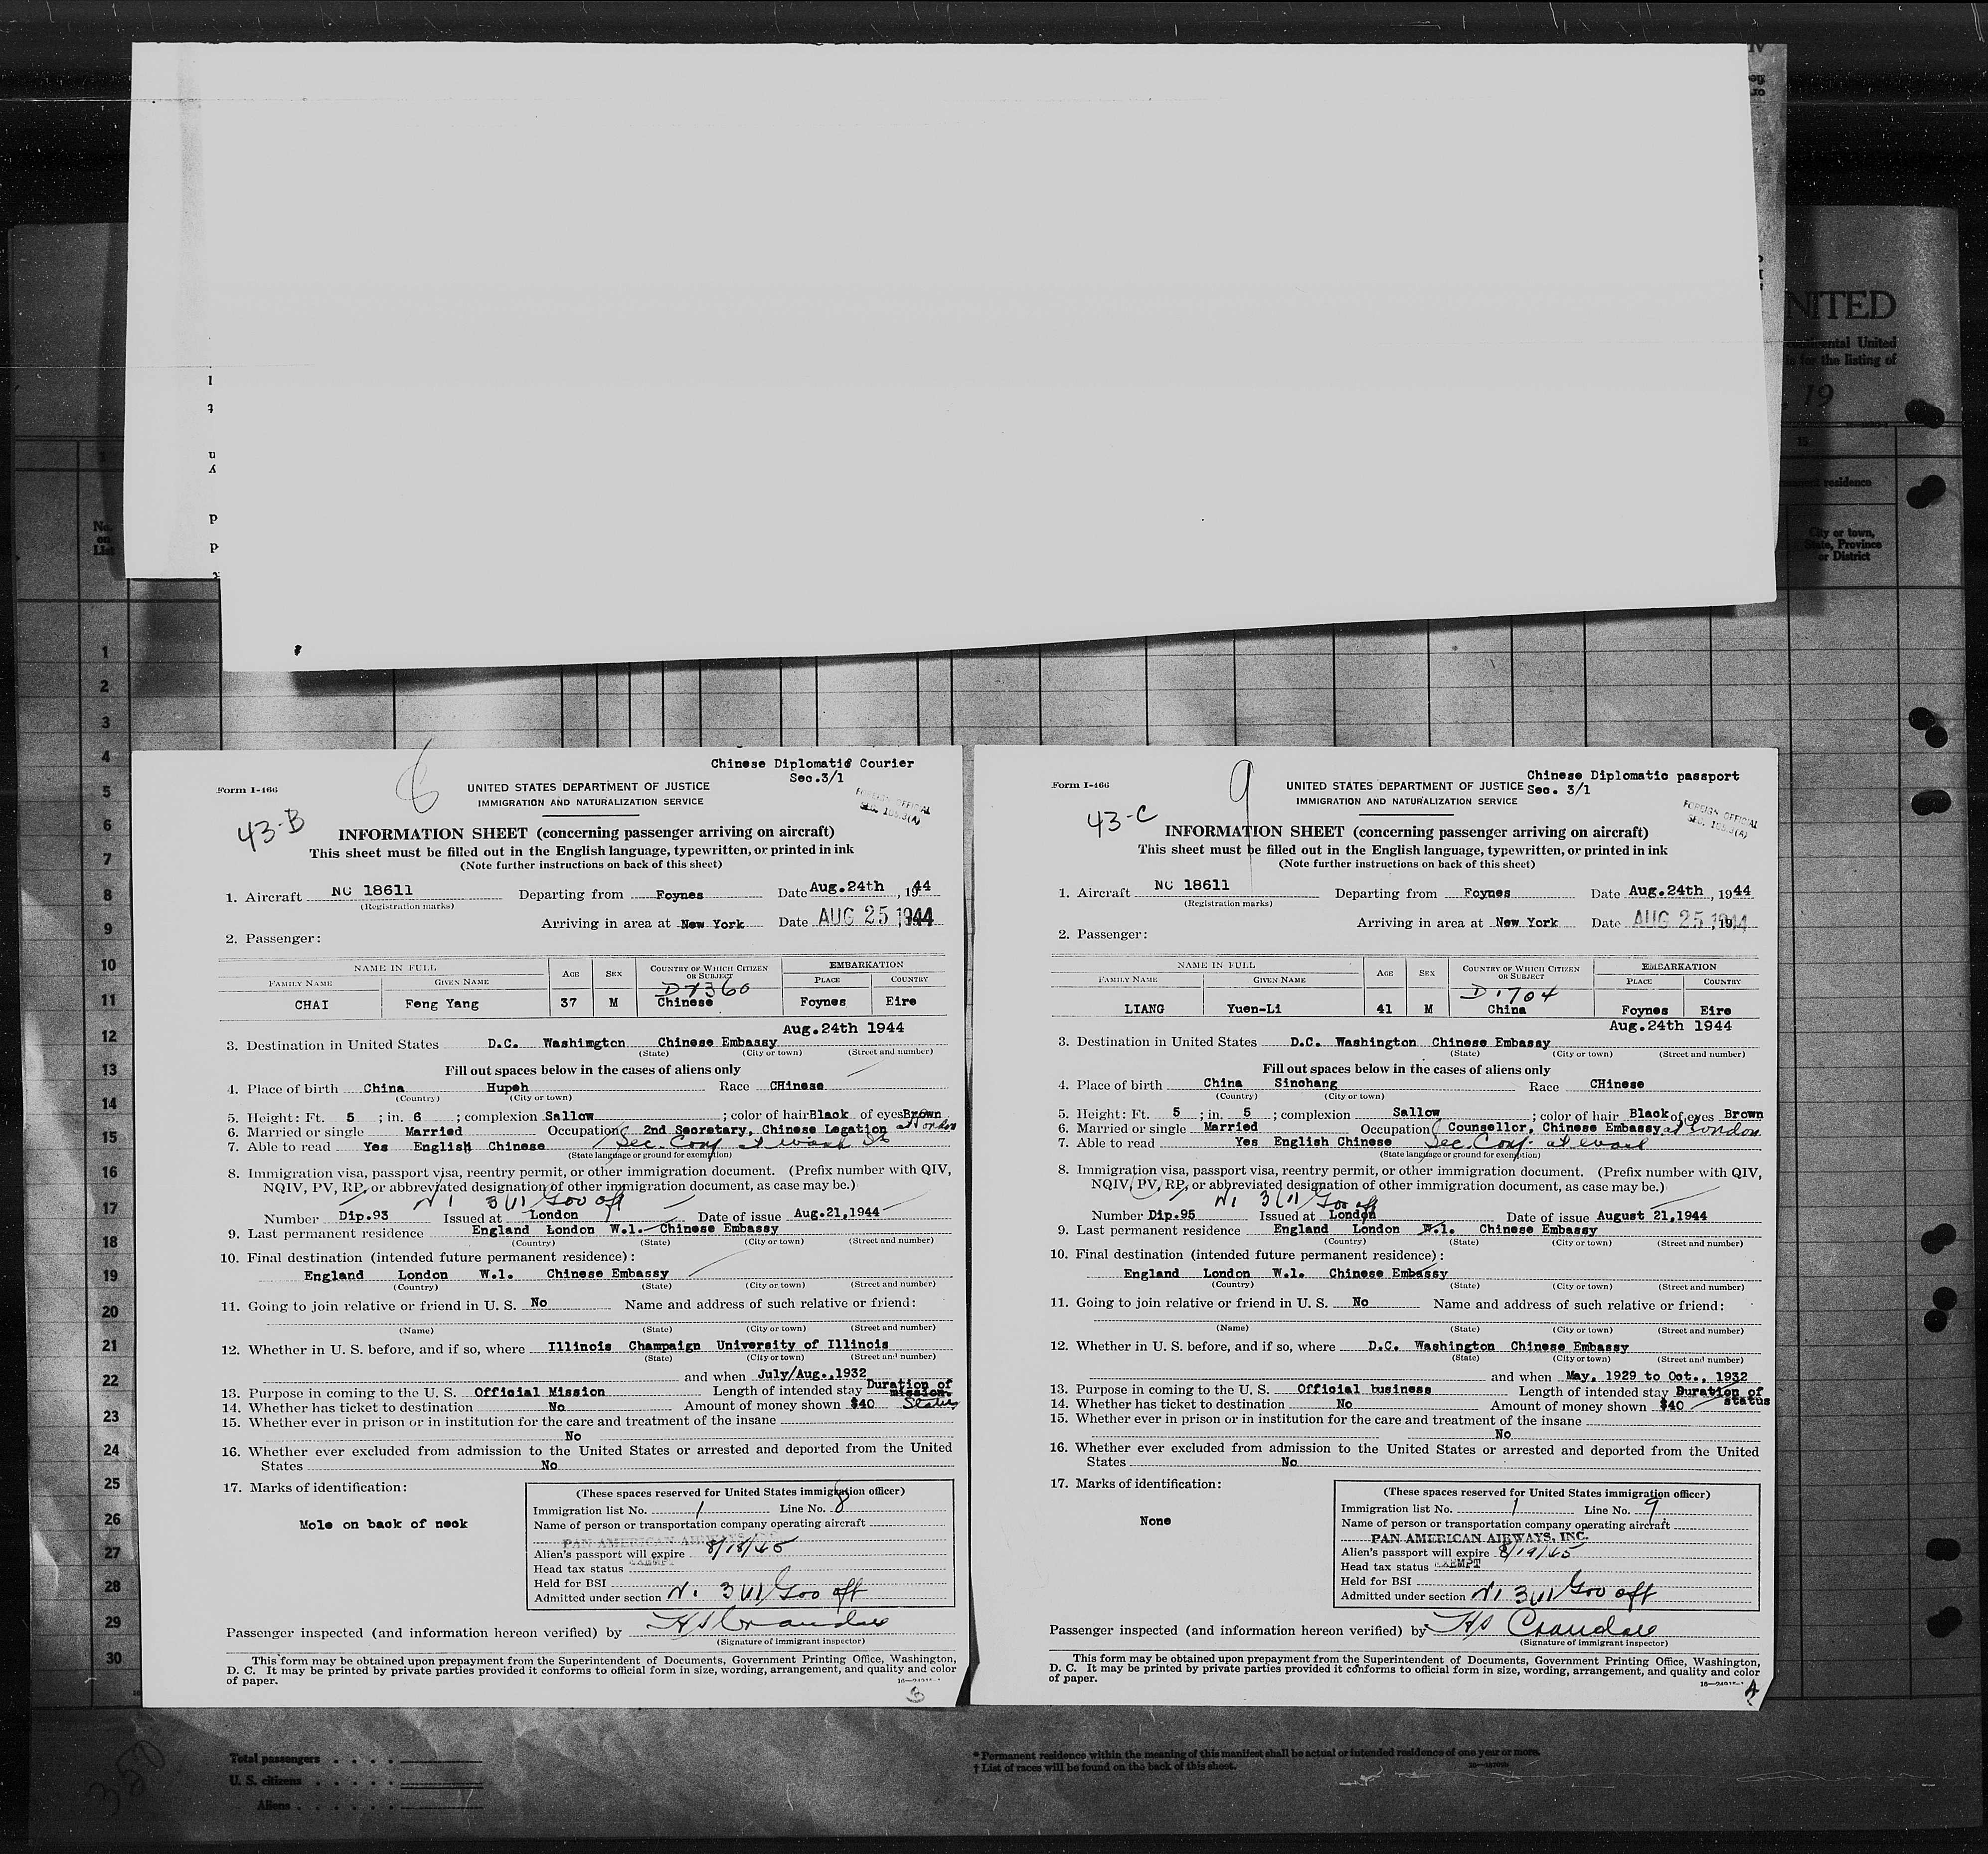 NITED
continental United
is for the listing of
, 19
15
permanent residence
City or town,
State, Province
or District
No.
on
List
1
2
3
4
5
6
7
8
9
10
11
12
13
14
15
16
17
18
19
20
21
22
23
24
25
26
27
28
29
30
8
Chinese Diplomatic Courier
Sec.3/1
Form I-466
UNITED STATES DEPARTMENT OF JUSTICE
IMMIGRATION AND NATURALIZATION SERVICE
FOREIGN OFFICIAL
SEC. 105.3(A)
43-B
INFORMATION SHEET (concerning passenger arriving on aircraft)
This sheet must be filled out in the English language, typewritten, or printed in ink
(Note further instructions on back of this sheet)
1. Aircraft NC 18611 Departing from Foynes Date Aug.24th, 1944
(Registration marks)
Arriving in area at New York Date AUG 25 1944
2. Passenger:
NAME IN FULL AGE SEX COUNTRY OF WHICH CITIZEN OR SUBJECT EMBARKATION
FAMILY NAME GIVEN NAME PLACE COUNTRY
CHAI Feng Yang 37 M Chinese Foynes Eire
Aug.24th 1944
3. Destination in United States D.C. Washington Chinese Embassy
(State) (City or town) (Street and number)
Fill out spaces below in the cases of aliens only
4. Place of birth China Hupeh Race CHinese
(Country) (City or town)
5. Height: Ft. 5 ; in. 6 ; complexion Sallow ; color of hair Black of eyes Brown
6. Married or single Married Occupation 2nd Secretary, Chinese Legation at London
7. Able to read Yes English Chinese Sec. Conf at
(State language or ground for exemption)
8. Immigration visa, passport visa, reentry permit, or other immigration document. (Prefix number with QIV,
NQIV, PV, RP, or abbreviated designation of other immigration document, as case may be.)
3(1) Gov off
Number Dip.93 Issued at London Date of issue Aug.21,1944
9. Last permanent residence England London W.1. Chinese Embassy
(Country) (State) (City or town) (Street and number)
10. Final destination (intended future permanent residence):
England London W.1. Chinese Embassy
(Country) (State) (City or town) (Street and number)
11. Going to join relative or friend in U. S. No Name and address of such relative or friend:
(Name) (State) (City or town) (Street and number)
12. Whether in U. S. before, and if so, where Illinois Champaign University of Illinois
(State) (City or town) (Street and number)
and when July/Aug.,1932
13. Purpose in coming to the U. S. Official Mission Length of intended stay Duration of mission. Status
14. Whether has ticket to destination No Amount of money shown $40
15. Whether ever in prison or in institution for the care and treatment of the insane
No
16. Whether ever excluded from admission to the United States or arrested and deported from the United
States No
17. Marks of identification:
Mole on back of neck
(These spaces reserved for United States immigration officer)
Immigration list No. 1 Line No. 8
Name of person or transportation company operating aircraft
PAN AMERICAN AIRWAYS, INC.
Alien's passport will expire 8/18/45
Head tax status EXEMPT
Held for BSI
Admitted under section 3(1) Gov off
Passenger inspected (and information hereon verified) by HS Crandall
(Signature of immigrant inspector)
This form may be obtained upon prepayment from the Superintendent of Documents, Government Printing Office, Washington,
D. C. It may be printed by private parties provided it conforms to official form in size, wording, arrangement, and quality and color
of paper.
9
Chinese Diplomatic passport
Sec. 3/1
Form I-466
UNITED STATES DEPARTMENT OF JUSTICE
IMMIGRATION AND NATURALIZATION SERVICE
FOREIGN OFFICIAL
SEC. 105.3(A)
43-C
INFORMATION SHEET (concerning passenger arriving on aircraft)
This sheet must be filled out in the English language, typewritten, or printed in ink
(Note further instructions on back of this sheet)
1. Aircraft NC 18611 Departing from Foynes Date Aug.24th, 1944
(Registration marks)
Arriving in area at New York Date AUG 25 1944
2. Passenger:
NAME IN FULL AGE SEX COUNTRY OF WHICH CITIZEN OR SUBJECT EMBARKATION
FAMILY NAME GIVEN NAME PLACE COUNTRY
D 1704
LIANG Yuen-Li 41 M China Foynes Eire
Aug.24th 1944
3. Destination in United States D.C. Washington Chinese Embassy
(State) (City or town) (Street and number)
Fill out spaces below in the cases of aliens only
4. Place of birth China Sinchang Race CHinese
(Country) (City or town)
5. Height: Ft. 5 ; in. 5 ; complexion Sallow ; color of hair Black of eyes Brown
6. Married or single Married Occupation Counsellor, Chinese Embassy at London
7. Able to read Yes English Chinese Sec. Conf. at
(State language or ground for exemption)
8. Immigration visa, passport visa, reentry permit, or other immigration document. (Prefix number with QIV,
NQIV, PV, RP, or abbreviated designation of other immigration document, as case may be.)
3(1) Gov off
Number Dip.95 Issued at London Date of issue August 21,1944
9. Last permanent residence England London W.1. Chinese Embassy
(Country) (State) (City or town) (Street and number)
10. Final destination (intended future permanent residence):
England London W.1. Chinese Embassy
(Country) (State) (City or town) (Street and number)
11. Going to join relative or friend in U. S. No Name and address of such relative or friend:
(Name) (State) (City or town) (Street and number)
12. Whether in U. S. before, and if so, where D.C. Washington Chinese Embassy
(State) (City or town) (Street and number)
and when May, 1929 to Oct., 1932
13. Purpose in coming to the U. S. Official business Length of intended stay Duration of status
14. Whether has ticket to destination No Amount of money shown $40
15. Whether ever in prison or in institution for the care and treatment of the insane
No
16. Whether ever excluded from admission to the United States or arrested and deported from the United
States No
17. Marks of identification:
None
(These spaces reserved for United States immigration officer)
Immigration list No. 1 Line No. 9
Name of person or transportation company operating aircraft
PAN AMERICAN AIRWAYS, INC.
Alien's passport will expire 8/19/45
Head tax status EXEMPT
Held for BSI
Admitted under section 3(1) Gov off
Passenger inspected (and information hereon verified) by HS Crandall
(Signature of immigrant inspector)
This form may be obtained upon prepayment from the Superintendent of Documents, Government Printing Office, Washington,
D. C. It may be printed by private parties provided it conforms to official form in size, wording, arrangement, and quality and color
of paper.
350
Total passengers
U. S. citizens
Aliens
* Permanent residence within the meaning of this manifest shall be actual or intended residence of one year or more.
† List of races will be found on the back of this sheet.